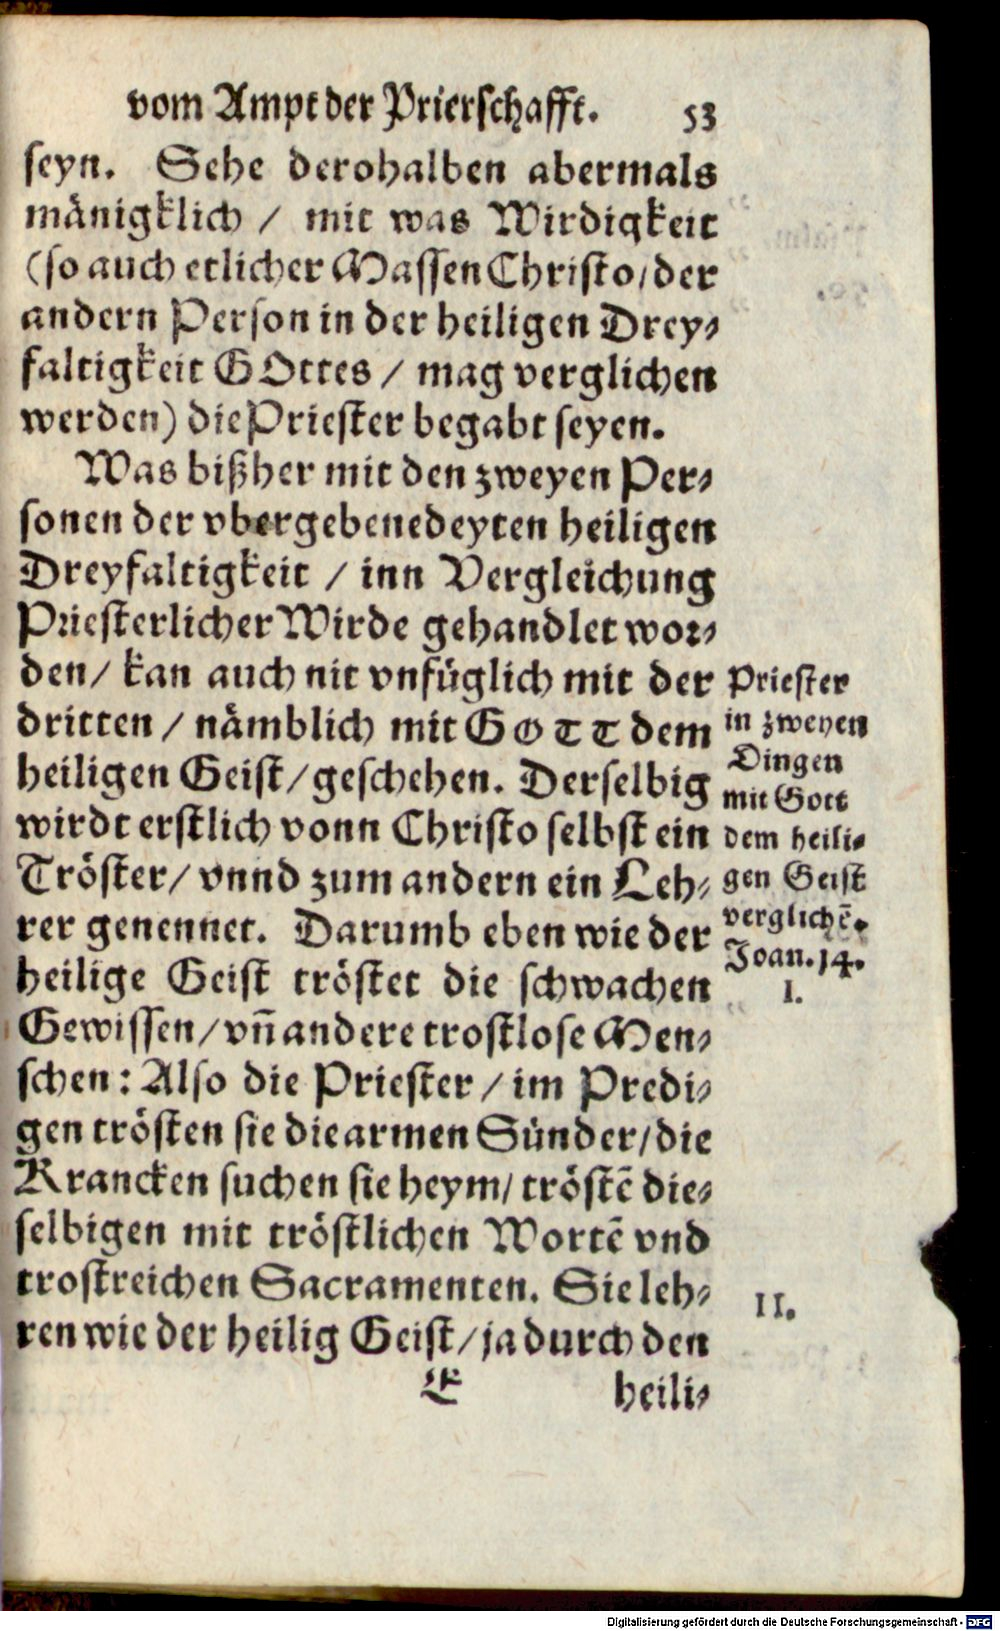 vom Ampt der Prierschafft. 53
seyn. Sehe derohalben abermals
mänigklich / mit was Wirdigkeit
(so auch etlicher Massen Christo/ der
andern Person in der heiligen Drey⸗
faltigkeit GOttes / mag verglichen
werden) die Priester begabt seyen.
Was bißher mit den zweyen Per⸗
sonen der vbergebenedeyten heiligen
Dreyfaltigkeit / inn Vergleichung
Priesterlicher Wirde gehandlet wor⸗
den/ kan auch nit vnfüglich mit der
dritten / nämblich mit GOTT dem
heiligen Geist/ geschehen. Derselbig
wirdt erstlich vonn Christo selbst ein
Tröster/ vnnd zum andern ein Leh⸗
rer genennet. Darumb eben wie der
heilige Geist tröstet die schwachen
Gewissen/ vñ andere trostlose Men⸗
schen: Also die Priester / im Predi⸗
gen trösten sie die armen Sünder/ die
Krancken suchen sie heym/ tröstē die⸗
selbigen mit tröstlichen Wortē vnd
trostreichen Sacramenten. Sie leh⸗
ren wie der heilig Geist/ ja durch den
E heili⸗
Priester
in zweyen
Dingen
mit Gott
dem heili⸗
gen Geist
verglichē.
Joan. 14.
I.
II.
Digitalisierung gefördert durch die Deutsche Forschungsgemeinschaft - DFG